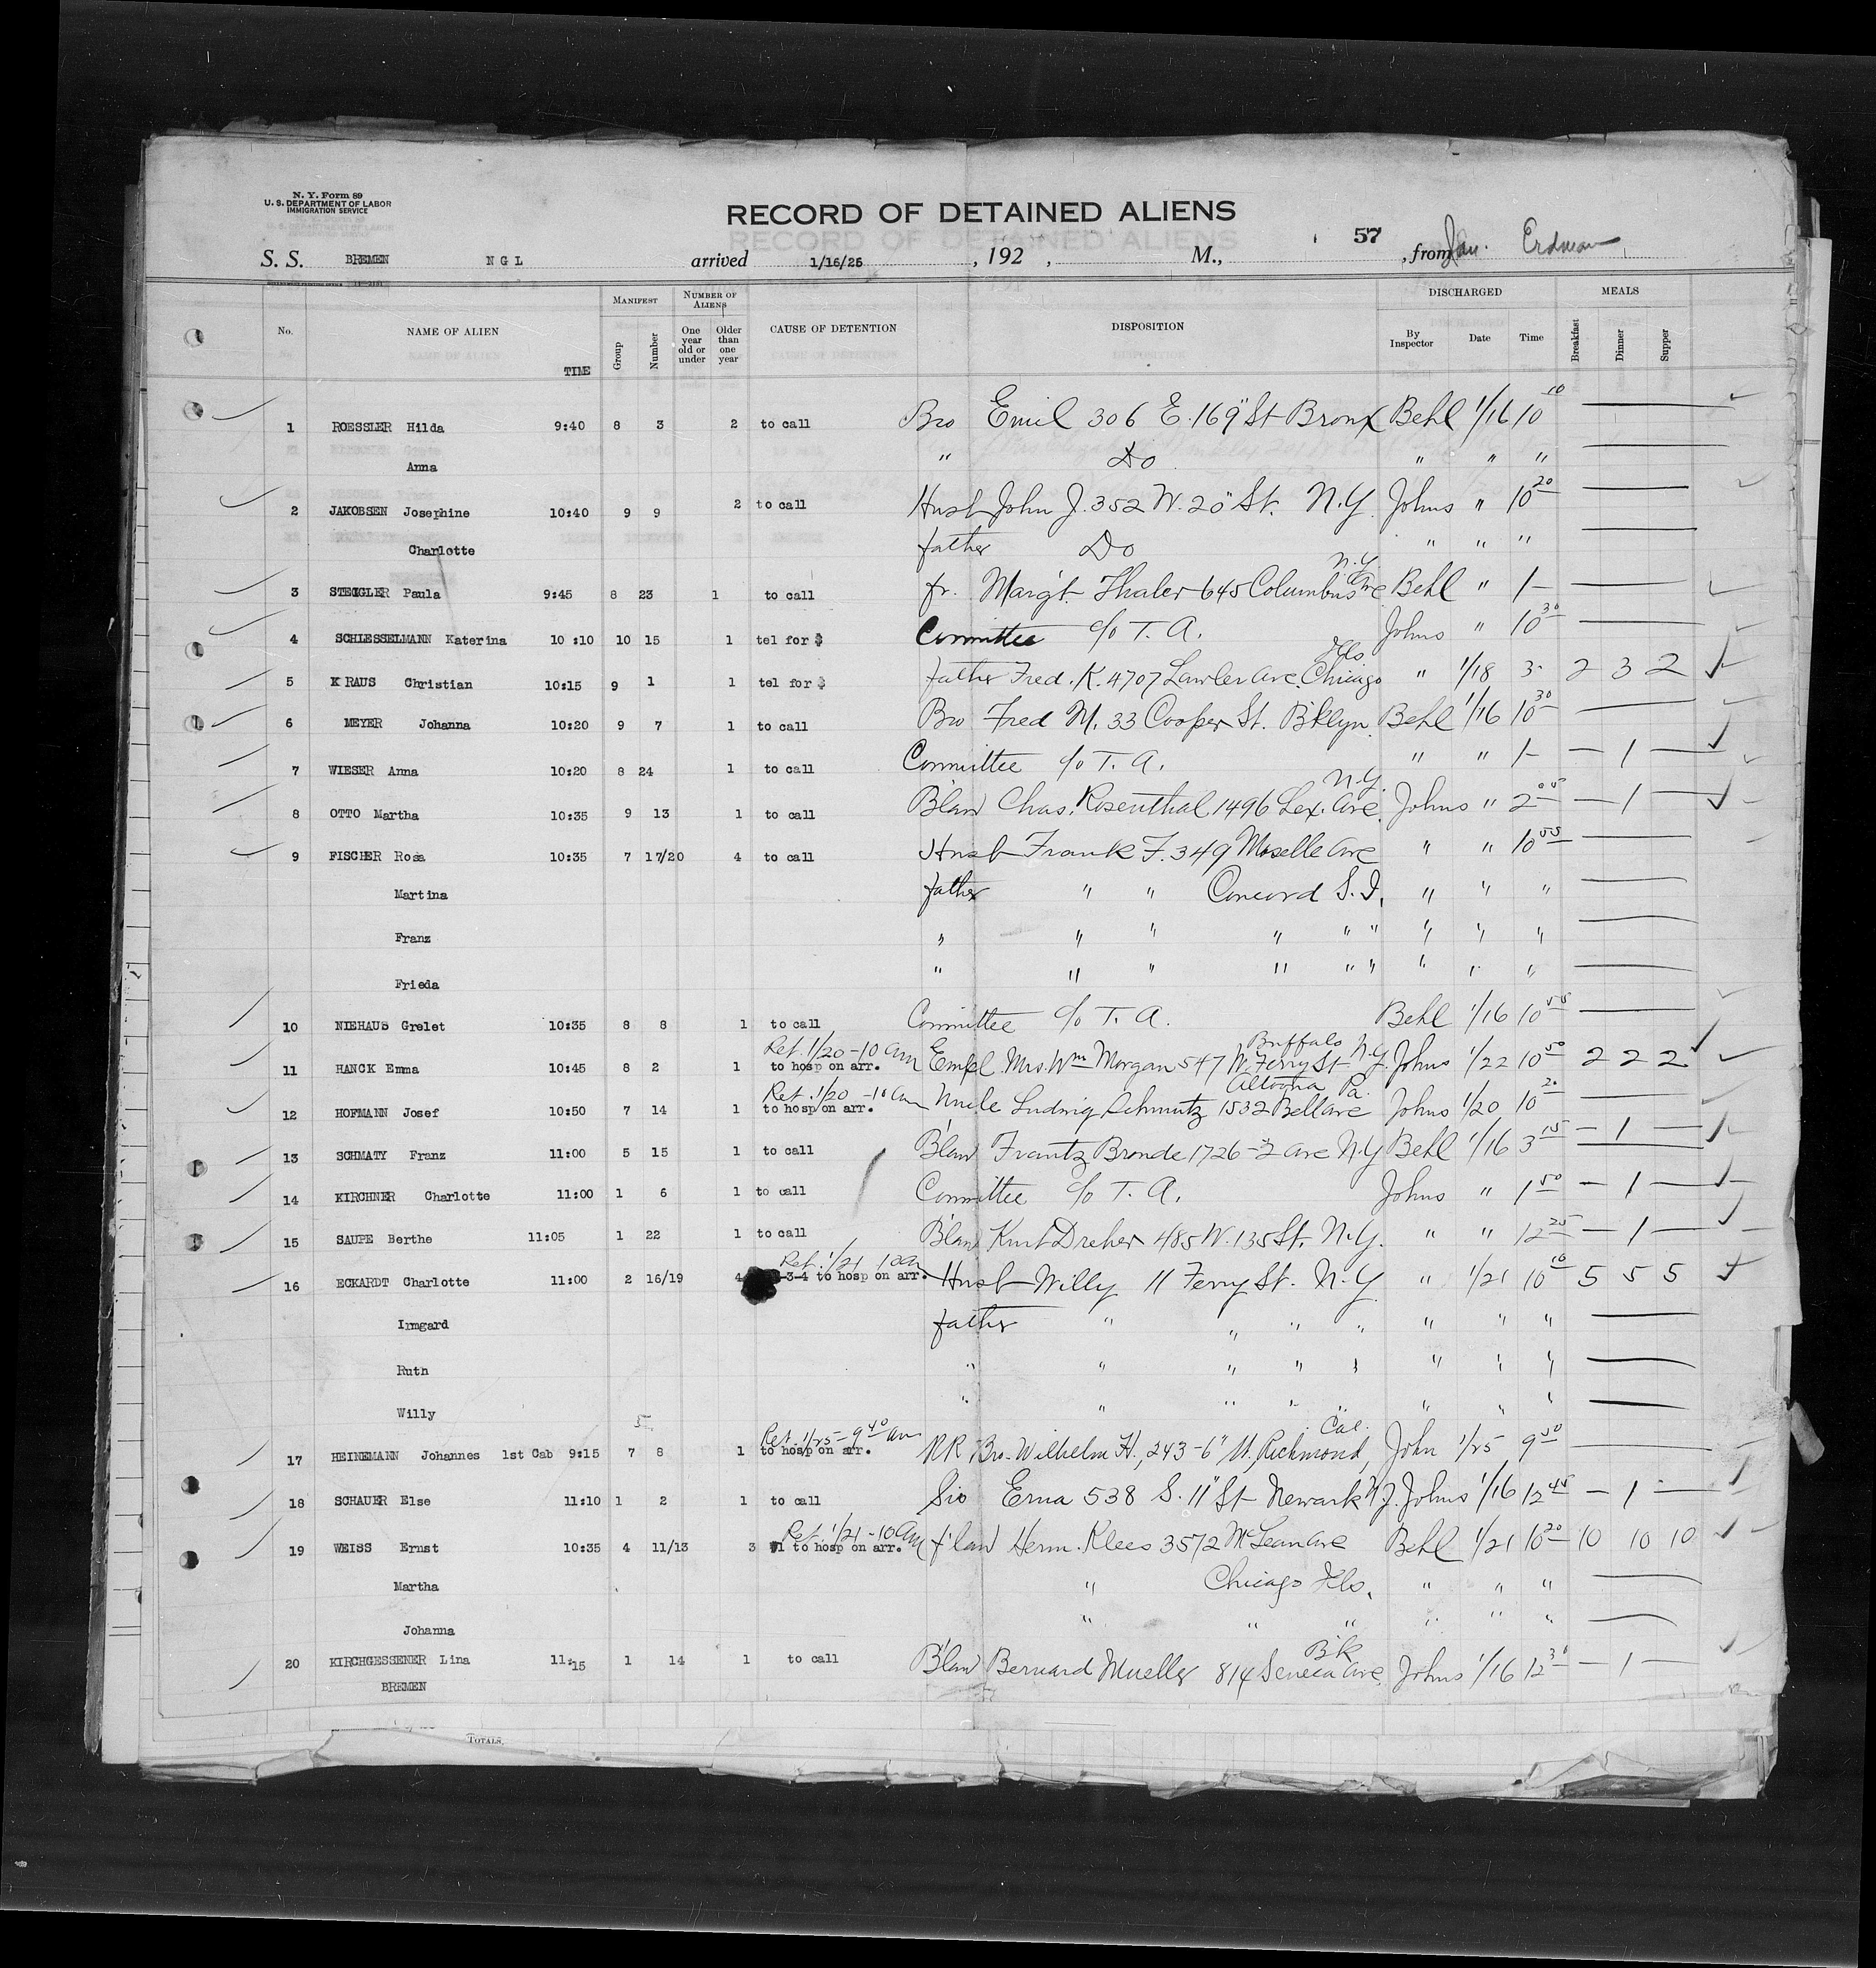 N. Y. Form 89
U. S. DEPARTMENT OF LABOR
IMMIGRATION SERVICE
RECORD OF DETAINED ALIENS
S. S. BREMEN N G L arrived 1/16/25, 192 , M., 57 , from Jan. Erdman
No. NAME OF ALIEN TIME MANIFEST Group Number NUMBER OF ALIENS One year old or under Older than one year CAUSE OF DETENTION DISPOSITION DISCHARGED By Inspector Date Time MEALS Breakfast Dinner Supper
1 ROESSLER Hilda 9:40 8 3 2 to call Bro Emil 306 E. 169" St Bronx Behl 1/16 10 10
Anna " Do " " "
2 JAKOBSEN Josephine 10:40 9 9 2 to call Husb John J. 352 W. 20" St. N.Y. Johns " 10 20
Charlotte father Do " " "
3 STEIGLER Paula 9:45 8 23 1 to call fr. Margt. Thaler 645 Columbus Ave N.Y. Behl " 1-
4 SCHLESSELMANN Katerina 10 :10 10 15 1 tel for $ Committee c/o T. A. Johns " 10 30
5 KRAUS Christian 10:15 9 1 1 tel for $ father Fred. K. 4707 Lawler Ave. Chicago Ills " 1/18 3- 2 3 2
6 MEYER Johanna 10:20 9 7 1 to call Bro Fred M. 33 Cooper St. B'klyn. Behl 1/16 10 30
7 WIESER Anna 10:20 8 24 1 to call Committee c/o T. A. " " 1- — 1 —
8 OTTO Martha 10:35 9 13 1 to call B'law Chas. Rosenthal 1496 Lex. Ave. N.Y. Johns " 2 05 — 1 —
9 FISCHER Rosa 10:35 7 17/20 4 to call Husb Frank F. 349 Moselle Ave " " 10 55
Martina father " " Concord S. I. " " "
Franz " " " " " " " " "
Frieda " " " " " " " " "
10 NIEHAUS Grelet 10:35 8 8 1 to call Committee c/o T. A. Behl 1/16 10 55
11 HANCK Emma 10:45 8 2 1 Ret. 1/20 - 10 am to hosp on arr. Empl. Mrs. Wm Morgan 547 W. Ferry St Buffalo N.Y. Johns 1/22 10 50 2 2 2
12 HOFMANN Josef 10:50 7 14 1 Ret. 1/20 - 10 am to hosp on arr. Uncle Ludwig Schmutz 1532 Bell Ave Altoona Pa. Johns 1/20 10 20
13 SCHMATY Franz 11:00 5 15 1 to call B'law Frantz Bronde 1726 - 2 Ave N.Y Behl 1/16 3 15 — 1 —
14 KIRCHNER Charlotte 11:00 1 6 1 to call Committee c/o T. A. Johns " 1 50 — 1 —
15 SAUPE Berthe 11:05 1 22 1 to call B'law Kurt Dreher 485 W. 135 St. N.Y. " " 12 25 — 1 —
16 ECKARDT Charlotte 11:00 2 16/19 4 Ret. 1/21 10 am 3-4 to hosp on arr. Husb Willy 11 Ferry St. N.Y " 1/21 10 10 5 5 5
Irmgard father " " " " " " "
Ruth " " " " " " " "
Willy " " " " " "
17 HEINEMANN Johannes 1st Cab 9:15 7 8 1 Ret. 1/25 - 9 40 am to hosp on arr. RR Bro. Wilhelm H., 243 - 6" St. Richmond, Cal. John 1/25 9 50
18 SCHAUER Else 11:10 1 2 1 to call Sis Erna 538 S. 11" St Newark N.J. Johns 1/16 12 45 — 1 —
19 WEISS Ernst 10:35 4 11/13 3 Ret. 1/21 - 10 am #1 to hosp on arr. f'law Herm. Klees 3572 McLean Ave Behl 1/21 10 20 10 10 10
Martha " Chicago Ills. " " "
Johanna " " " " " "
20 KIRCHGESSENER Lina 11:15 1 14 1 to call B'law Bernard Mueller 814 Seneca Ave. B'k Johns 1/16 12 30 — 1 —
BREMEN
TOTALS